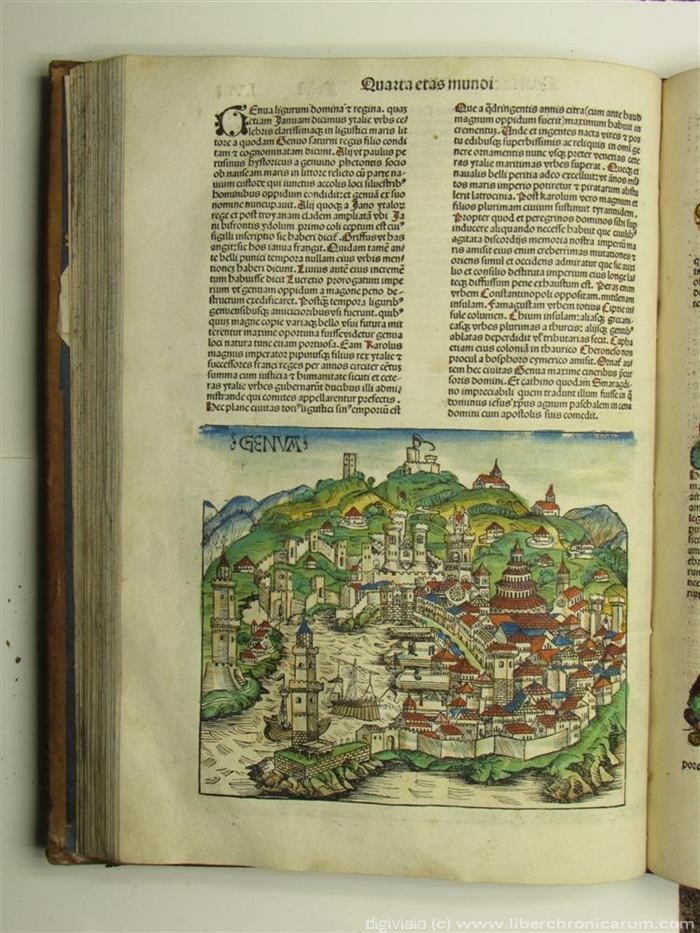 Quarta etas mundi
GEnua ligurum domina ⁊ regina. quaʒ
etiam Januam dicimus ytalie vrbs ce
lebris clarissimaqʒ in ligustici maris lit
tore a quodam Genuo saturni regis filio condi
tam ⁊ cognominatam dicunt. Alij vt paulus pe
rusinus hystoricus a genuino phetontis socio
ob nauseam maris in littore relicto cū parte na-
uium custode qui iunctus accolis loci siluestribꝰ
hominibus oppidum condidit: et genuā ex suo
nomine nuncupauit. Alij quoqʒ a Jano ytaloꝝ
rege et post troyanam cladem ampliatā vbi Ja
ni bifrontis ydolum primo coli ceptum est cuiꝰ
sigilli inscriptio sic haberi dicit̄. Griffus vt has
angit: sic hos ianua frangit. Quidam tamē an̄
te belli punici tempora nullam eius vrbis men
tionem haberi dicunt. Liuius autē eius incremē
tum habuisse dicit Lucretio prorogatum impe
rium vt genuam oppidum a magone peno de-
structum exedificaret. Postqʒ tempora liguribꝰ
genuensibusqʒ amicicioribus vsi fuerunt. quibꝰ
quia magne copie variaqʒ bello vsui futura mit
terentur maxime oportuna fuisse videtur genua
loci natura tunc etiam portuosa. Eam Karolus
magnus imperator pipinusqʒ filius rex ytalie ⁊
successores franci reges per annos circiter centuʒ
summa cum iusticia ⁊ humanitate sicuti et cete-
ras ytalie vrbes gubernarūt ducibus illi admi
nistrande qui comites appellarentur prefectis.
Hec plane ciuitas totiꝰ ligustici sinꝰ emporiū est
Que a q̄dringentis annis citra (cum ante haud
magnum oppidum fuerit) maximum habuit in
crementuʒ. Unde et ingentes nacta vires ⁊ por
tu edibusqʒ superbissimis ac reliquis in omī ge
nere ornamentis nunc vsqʒ preter venetias cete
ras ytalie maritimas vrbes superat. Queqʒ et
naualis belli peritia adeo excelluit: vt annos mul
tos maris imperio potiretur ⁊ piratarum abstu
lerit latrocinia. Post karolum vero magnum et
filios plurimam ciuium sustinuit tyrannidem.
Propter quod et peregrinos dominos sibi sup
inducere aliquando necesse habuit que ciuilibꝰ
agitata discordijs memoria nostra imperiū ma
ris amisit eius enim creberrimas mutationes ⁊
oriens simul et occidens admiratur que sic auxi
lio et consilio destituta imperium eius longe la
teqʒ diffusum pene exhaustum est. Peram enim
vrbem Constantinopoli oppositam. mutilenam
insulam. Famagustam vrbem totius Ciprie in
sule columen. Chium insulam: aliasqʒ grecani
casqʒ vrbes plurimas a thurcis: alijsqʒ gentibꝰ
ablatas deperdidit vel tributarias fecit. Capha
etiam eius coloniā in thaurica Cheroneso non
procul a bosphoro cymerico amisit. Ornat̄ au
tem hec ciuitas Genua maxime cineribus precur
soris domini. Et cathino quodam Smaragdi-
no impreciabili quem tradunt illum fuisse in q̄
dominus iesus xp̄us agnum paschalem in cena
domini cum apostolis suis comedit.
GENVA
digivisio (c) www.liberchronicarum.com